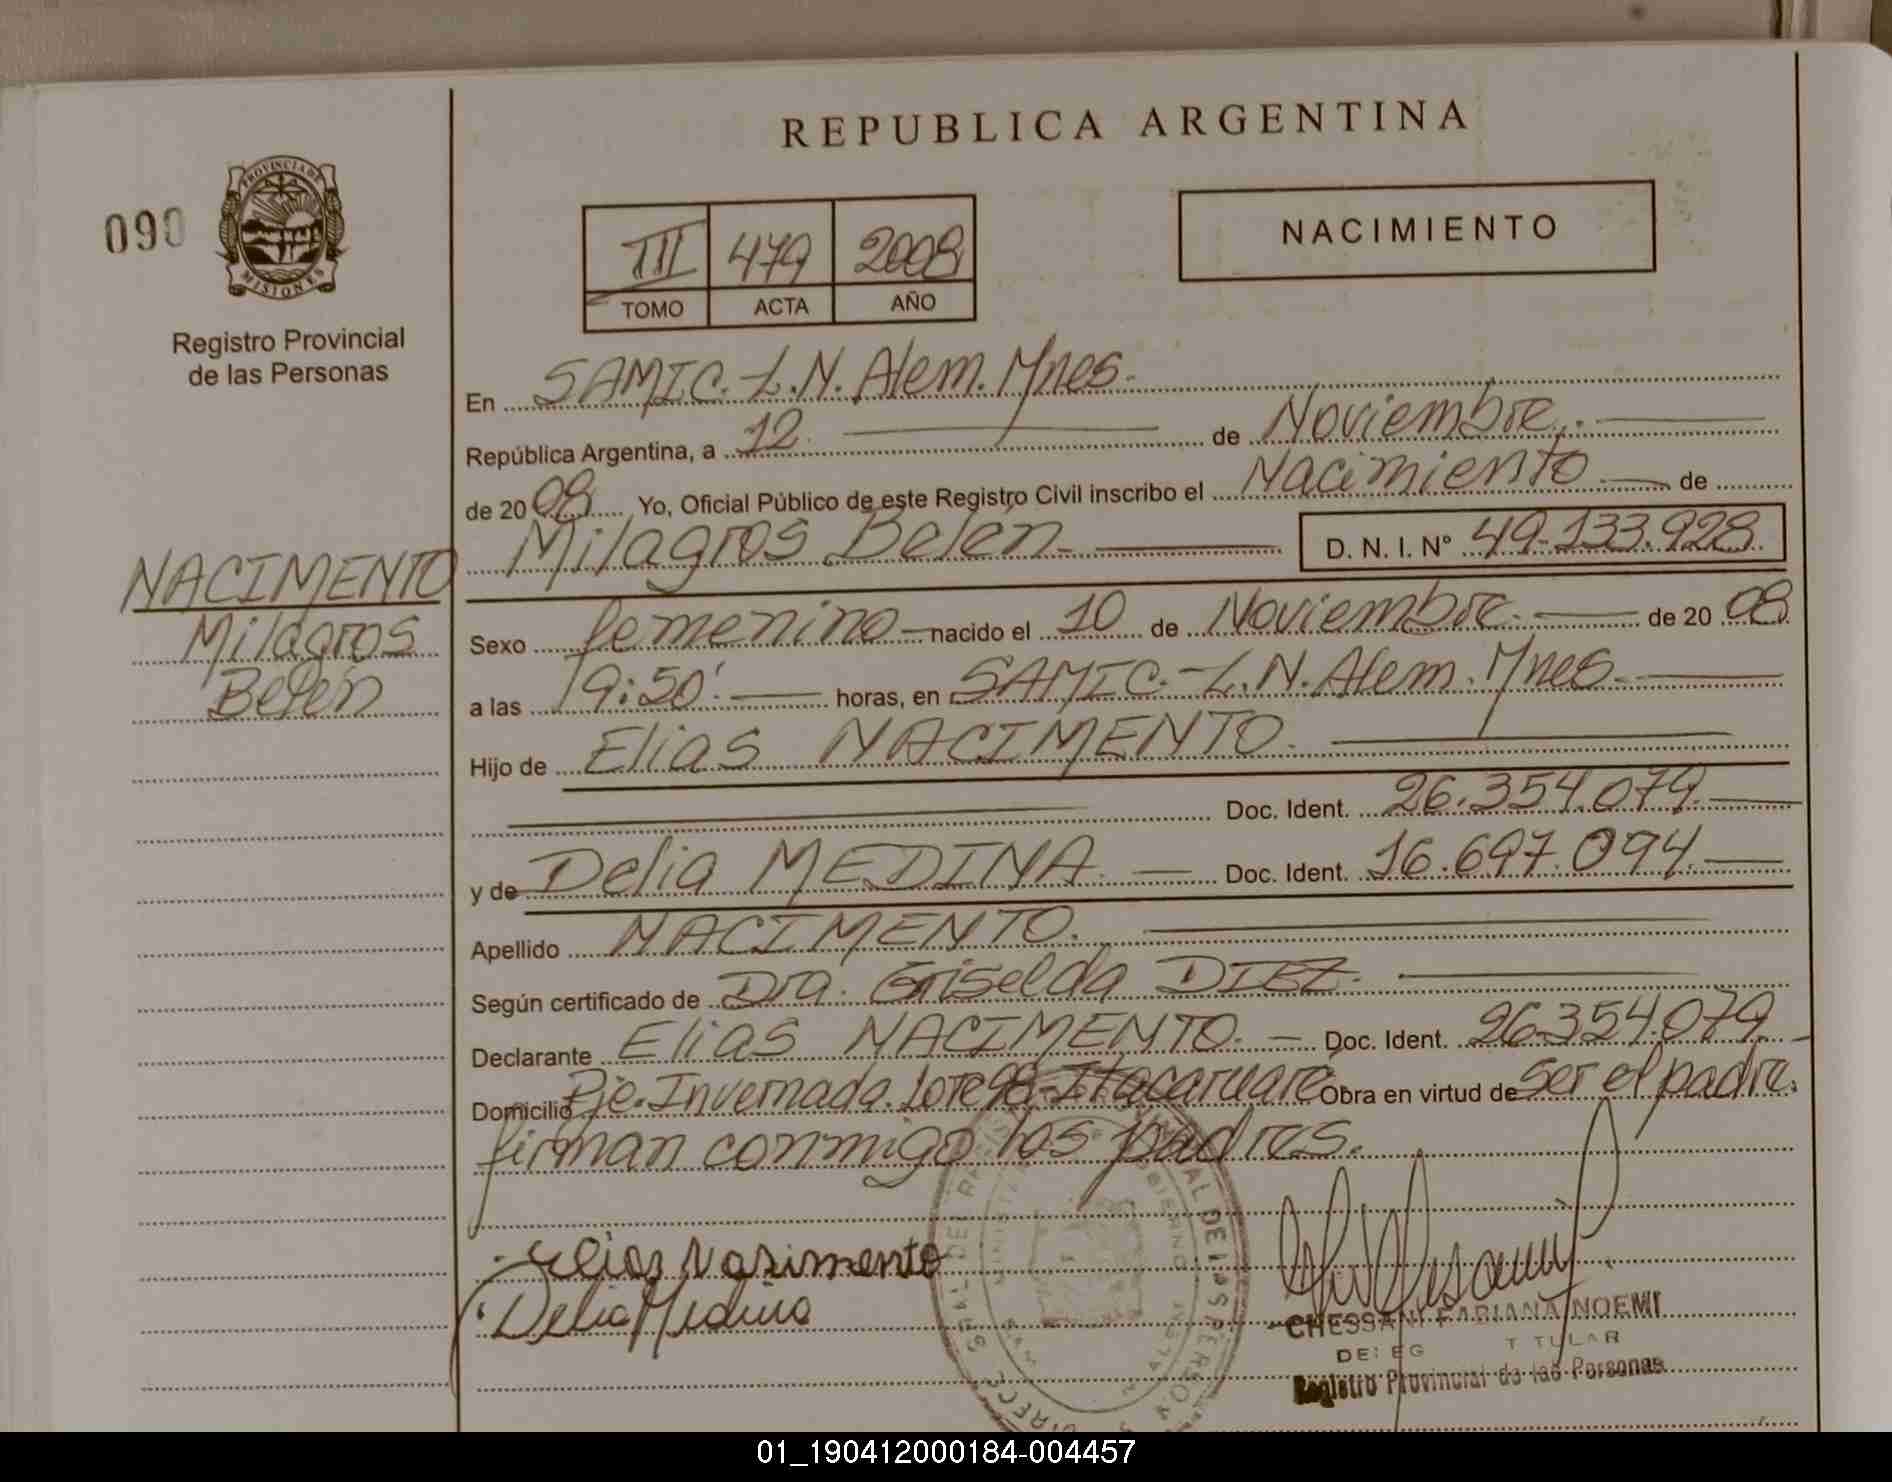 REPUBLICA ARGENTINA
090
PROVINCIA DE
MISIONES
Registro Provincial
de las Personas
III 479 2008
TOMO ACTA AÑO
NACIMIENTO
En SAMIC.-L.N. Alem. Mnes.
República Argentina, a 12. de Noviembre.
de 2008 Yo, Oficial Público de este Registro Civil inscribo el Nacimiento de
Milagros Belén D. N. I. N° 49.133.928
NACIMENTO
Milagros
Belén
Sexo femenino nacido el 10 de Noviembre. de 2008
a las 19:50' horas, en SAMIC.-L.N. Alem. Mnes.
Hijo de Elias NACIMENTO.
Doc. Ident. 26.354.079.
y de Delia MEDINA. Doc. Ident. 16.697.094.
Apellido NACIMENTO.
Según certificado de Dra. Griselda DIEZ.
Declarante Elias NACIMENTO. Doc. Ident. 26354.079
Domicilio Pje. Invernada. Lote 98-Itacaruaré Obra en virtud de ser el padre.
firman conmigo los padres.
Elias Nasimento
Delia Medina
CHESSANI FABIANA NOEMI
TITULAR
Registro Provincial de las Personas
01_190412000184-004457